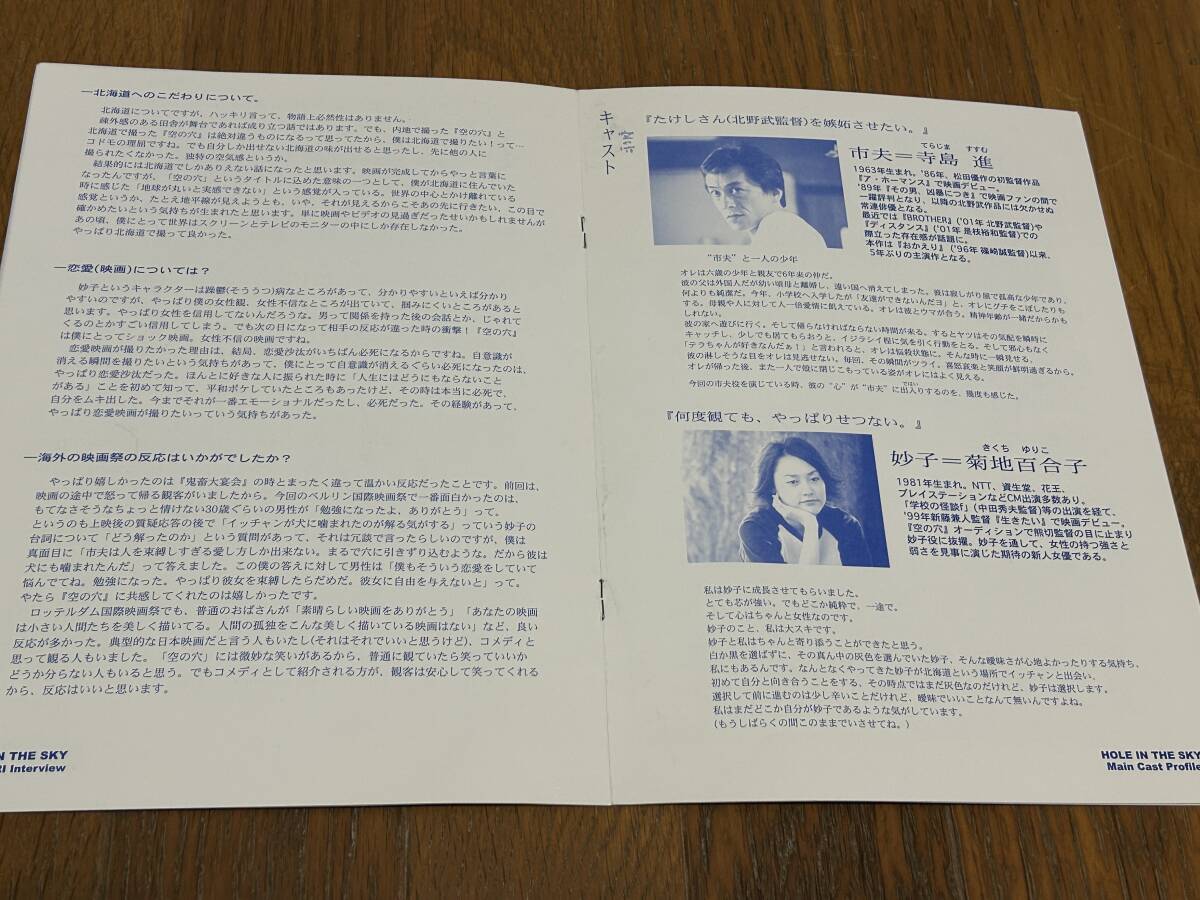 ―北海道へのこだわりについて。
北海道についてですが、ハッキリ言って、物語上必然性はありません。
疎外感のある田舎が舞台であれば成り立つ話ではあります。でも、内地で撮った『空の穴』と
北海道で撮った『空の穴』は絶対違うものになるって思ってたから、僕は北海道で撮りたい！って…
コドモの理屈ですね。でも自分しか出せない北海道の味が出せると思ったし、先に他の人に
撮られたくなかった。独特の空気感というか。
結果的には北海道でしかありえない話になったと思います。映画が完成してからやっと言葉に
なったんですが、「空の穴」というタイトルに込めた意味の一つとして、僕が北海道に住んでいた
時に感じた「地球が丸いと実感できない」という感覚が入っている。世界の中心とかけ離れている
感覚というか、たとえ地平線が見えようとも、いや、それが見えるからこそあの先に行きたい、この目で
確かめたいという気持ちが生まれたと思います。単に映画やビデオの見過ぎだったせいかもしれませんが
あの頃、僕にとって世界はスクリーンとテレビのモニターの中にしか存在しなかった。
やっぱり北海道で撮って良かった。
―恋愛(映画)については？
妙子というキャラクターは躁鬱(そううつ)病なところがあって、分かりやすいといえば分かり
やすいのですが、やっぱり僕の女性観、女性不信なところが出ていて、掴みにくいところがあると
思います。やっぱり女性を信用してないんだろうな。男って関係を持った後の会話とか、じゃれて
くるのとかすごい信用してしまう。でも次の日になって相手の反応が違った時の衝撃！『空の穴』
は僕にとってショック映画。女性不信の映画ですね。
恋愛映画が撮りたかった理由は、結局、恋愛沙汰がいちばん必死になるからですね。自意識が
消える瞬間を撮りたいという気持ちがあって、僕にとって自意識が消えるぐらい必死になったのは、
やっぱり恋愛沙汰だった。ほんとに好きな人に振られた時に「人生にはどうにもならないこと
がある」ことを初めて知って、平和ボケしていたところもあったけど、その時は本当に必死で、
自分をムキ出した。今までそれが一番エモーショナルだったし、必死だった。その経験があって、
やっぱり恋愛映画が撮りたいっていう気持ちがあった。
―海外の映画祭の反応はいかがでしたか？
やっぱり嬉しかったのは『鬼畜大宴会』の時とまったく違って温かい反応だったことです。前回は、
映画の途中で怒って帰る観客がいましたから。今回のベルリン国際映画祭で一番面白かったのは、
もてなさそうなちょっと情けない30歳ぐらいの男性が「勉強になったよ、ありがとう」って。
というのも上映後の質疑応答の後で「イッチャンが犬に噛まれたのが解る気がする」っていう妙子の
台詞について「どう解ったのか」という質問があって、それは冗談で言ったらしいのですが、僕は
真面目に「市夫は人を束縛しすぎる愛し方しか出来ない。まるで穴に引きずり込むような。だから彼は
犬にも噛まれたんだ」って答えました。この僕の答えに対して男性は「僕もそういう恋愛をしていて
悩んでてね。勉強になった。やっぱり彼女を束縛したらだめだ。彼女に自由を与えないと」って。
やたら『空の穴』に共感してくれたのは嬉しかったです。
ロッテルダム国際映画祭でも、普通のおばさんが「素晴らしい映画をありがとう」「あなたの映画
は小さい人間たちを美しく描いてる。人間の孤独をこんな美しく描いている映画はない」など、良い
反応が多かった。典型的な日本映画だと言う人もいたし(それはそれでいいと思うけど)、コメディと
思って観る人もいました。「空の穴」には微妙な笑いがあるから、普通に観ていたら笑っていいか
どうか分らない人もいると思う。でもコメディとして紹介される方が、観客は安心して笑ってくれる
から、反応はいいと思います。
N THE SKY
RI Interview
キャスト
『たけしさん(北野武監督)を嫉妬させたい。』
てらじま すすむ
市夫＝寺島 進
1963年生まれ。'86年、松田優作の初監督作品
『ア・ホーマンス』で映画デビュー。
'89年『その男、凶暴につき』で映画ファンの間で
一躍評判となり、以降の北野武作品には欠かせぬ
常連俳優となる。
最近では『BROTHER』('01年 北野武監督)や
『ディスタンス』('01年 是枝裕和監督)での
際立った存在感が話題に。
本作は『おかえり』('96年 篠崎誠監督)以来、
5年ぶりの主演作となる。
“市夫”と一人の少年
オレは六歳の少年と親友で6年来の仲だ。
彼の父は外国人だが幼い頃母と離婚し、遠い国へ消えてしまった。彼は寂しがり屋で孤高な少年であり、
何よりも純潔だ。今年、小学校へ入学したが「友達ができないんだヨ」と、オレにグチをこぼしたりも
する。母親や人に対して人一倍愛情に飢えている。オレは彼とウマが合う。精神年齢が一緒だからかも
しれない。
彼の家へ遊びに行く。そして帰らなければならない時間が来る。するとヤツはその気配を瞬時に
キャッチし、少しでも居てもらおうと、イジラシイ程に気を引く行動をとる。そして邪心もなく
「テラちゃんが好きなんだぁ！」と言われると、オレは悩殺状態に。そんな時に一瞬見せる、
彼の淋しそうな目をオレは見逃せない。毎回、その瞬間がツライ。喜怒哀楽と笑顔が鮮明過ぎるから。
オレが帰った後、また一人で殻に閉じこもっている姿がオレにはよく見える。
今回の市夫役を演じている時、彼の“心”が“市夫”に出入りするのを、幾度も感じた。
『何度観ても、やっぱりせつない。』
きくち ゆりこ
妙子＝菊地百合子
1981年生まれ。NTT、資生堂、花王、
プレイステーションなどCM出演多数あり。
「学校の怪談f」(中田秀夫監督)等の出演を経て、
'99年新藤兼人監督『生きたい』で映画デビュー。
『空の穴』オーディションで熊切監督の目に止まり
妙子役に抜擢。妙子を通して、女性の持つ強さと
弱さを見事に演じた期待の新人女優である。
私は妙子に成長させてもらいました。
とても芯が強い。でもどこか純粋で、一途で。
そして心はちゃんと女性なのです。
妙子のこと、私は大スキです。
妙子と私はちゃんと寄り添うことができたと思う。
白か黒を選ばずに、その真ん中の灰色を選んでいた妙子、そんな曖昧さが心地よかったりする気持ち、
私にもあるんです。なんとなくやってきた妙子が北海道という場所でイッチャンと出会い、
初めて自分と向き合うことをする、その時点ではまだ灰色なのだけれど、妙子は選択します。
選択して前に進むのは少し辛いことだけれど、曖昧でいいことなんて無いんですよね。
私はまだどこか自分が妙子であるような気がしています。
(もうしばらくの間このままでいさせてね。)
HOLE IN THE SKY
Main Cast Profile